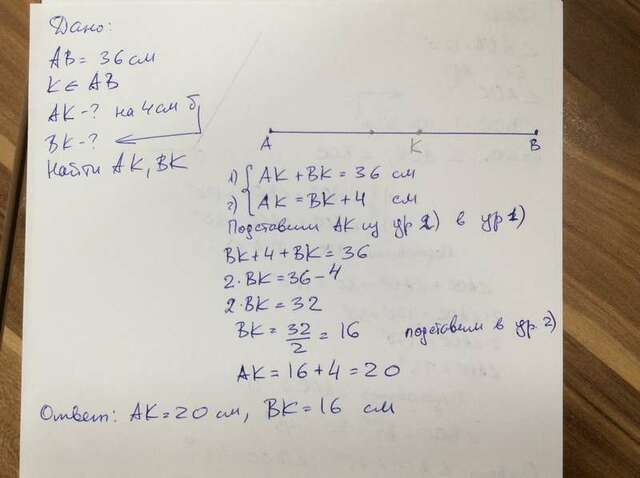 Дано:
AB = 36 см
K ∈ AB
AK - ? на 4 см б
BK - ?
Найти AK, BK
A K B
1) { AK + BK = 36 см
2) { AK = BK + 4 см
Подставим AK из ур 2) в ур 1)
BK + 4 + BK = 36
2·BK = 36 - 4
2·BK = 32
BK = 32/2 = 16 подставим в ур. 2)
AK = 16 + 4 = 20
Ответ: AK = 20 см, BK = 16 см